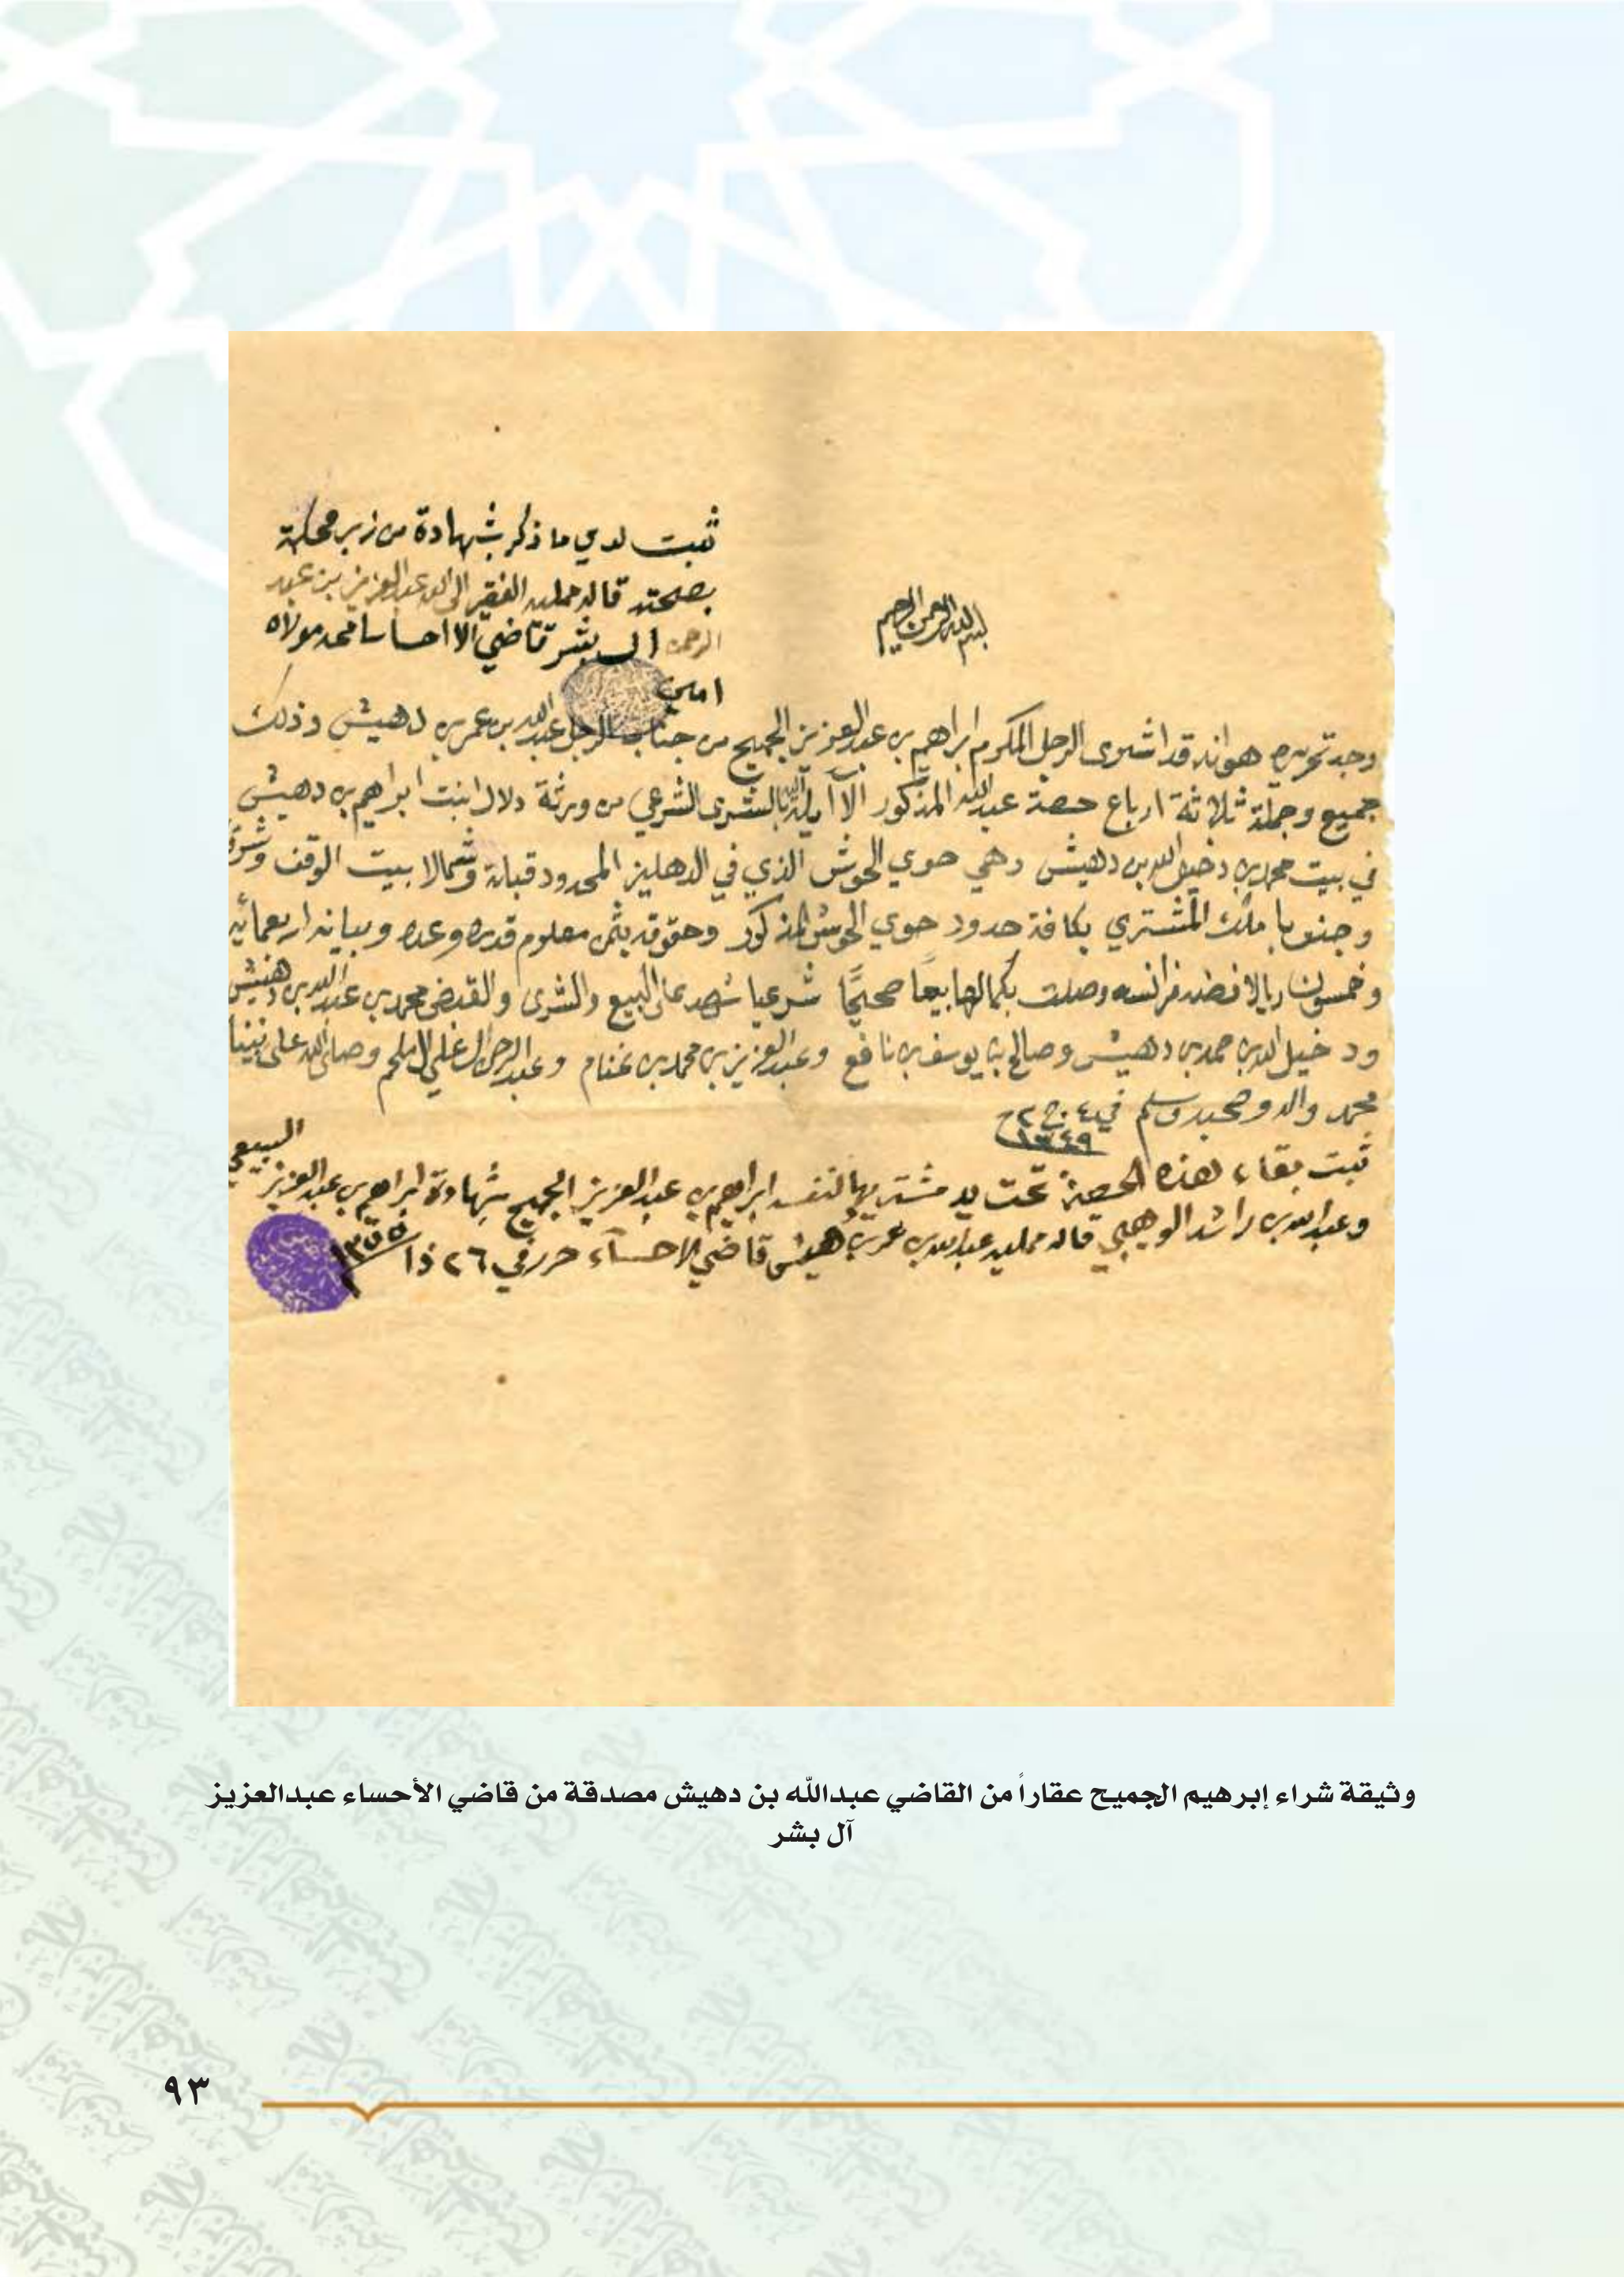 ثبت لدي ما ذكر بشهادة من زبر محله
بصحته قاله ممليه الفقير الى الله عبدالعزيز بن عبد
الرحمن ال بشر قاضي الااحسا سامحه مولاه
امين
بسم الله الرحمن الرحيم
وجد تحريره هو انه قد اشترى الرجل المكرم ابراهيم بن عبدالعزيز الجميح من جناب الرجل عبدالله بن عمر بن دهيش وذلك
جميع وجملة ثلاثة ارباع حصة عبدالله المذكور الآيلة بالشرى الشرعي من ورثة دلال ابنت ابراهيم بن دهيش
في بيت محمد بن دخيل الله بن دهيش وهي حوي الحوش الذي في الدهليز المحدود قبلة وشمالا بيت الوقف وشرق
وجنوبا ملك المشتري بكافة حدود حوي الحوش المذكور وحقوقه بثمن معلوم قدره وعده وبيانه اربعمائه
وخمسون ريالا فضه فرانسه وصلت بكمالها بيعا صحيحًا شرعيا شهد على البيع والشرى والقبض محمد بن عبدالله بن دهيش
ودخيل الله بن حمد بن دهيش وصالح بن يوسف بن نافع وعبدالعزيز بن محمد بن غنام وصلى الله على نبينا
محمد واله وصحبه وسلم في ٤ ج ٢
١٣٤٩
ثبت بقاء هذه الحصة تحت يد مشتريها لنفسه ابراهيم بن عبدالعزيز الجميح بشهادة ابراهيم بن عبدالعزيز السبيعي
وعبدالله بن راشد الوهيبي قاله ممليه عبدالله بن عمر بن دهيش قاضي الاحساء حرر في ٢٦ ذا ١٣٥٥
وثيقة شراء إبرهيم الجميح عقاراً من القاضي عبدالله بن دهيش مصدقة من قاضي الأحساء عبدالعزيز
آل بشر
٩٣